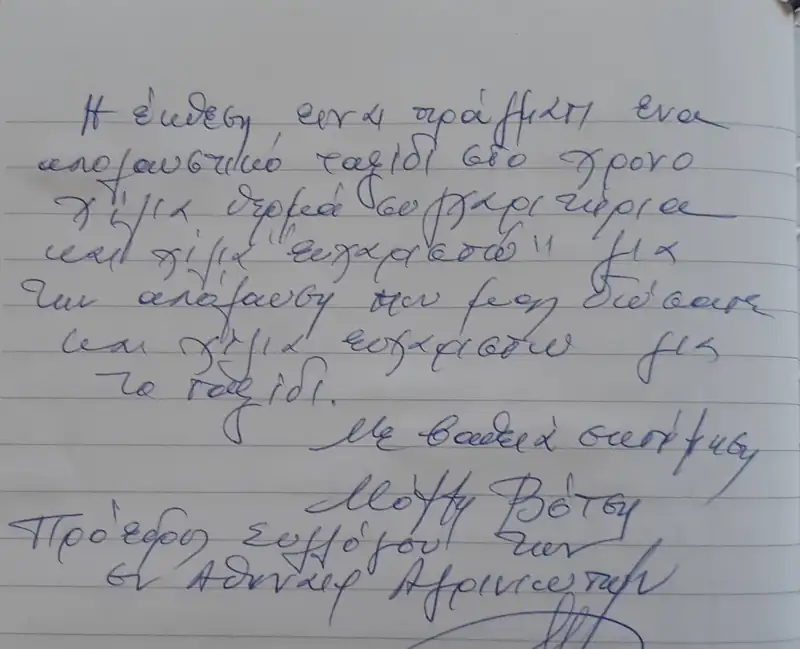 Η έκθεση ειναι πράγματι ενα
απολαυστικό ταξίδι στο χρονο
χίλια θερμά συγχαρητήρια
και χίλια "ευχαριστώ" για
την απόλαυση που μας δώσατε
και χίλια ευχαριστω για
το ταξίδι.
Με βαθειά εκτίμηση
Βότση
Πρόεδρος Συλλόγου των
εν Αθηναις Αγρινιωτων